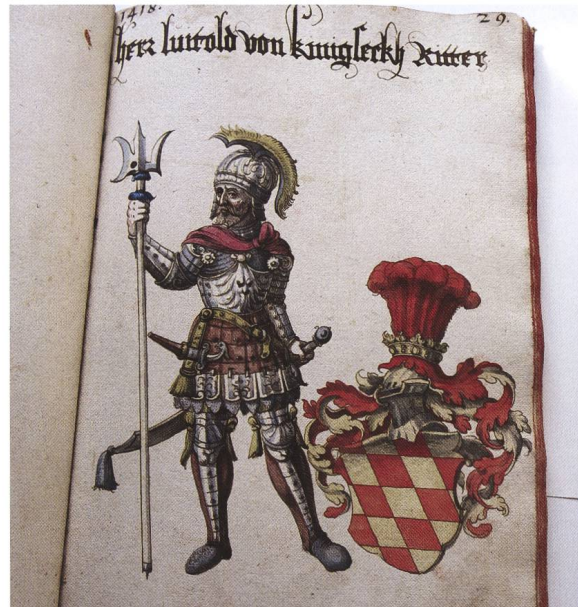 1418.
29.
herr luitold von kunigseckh Ritter